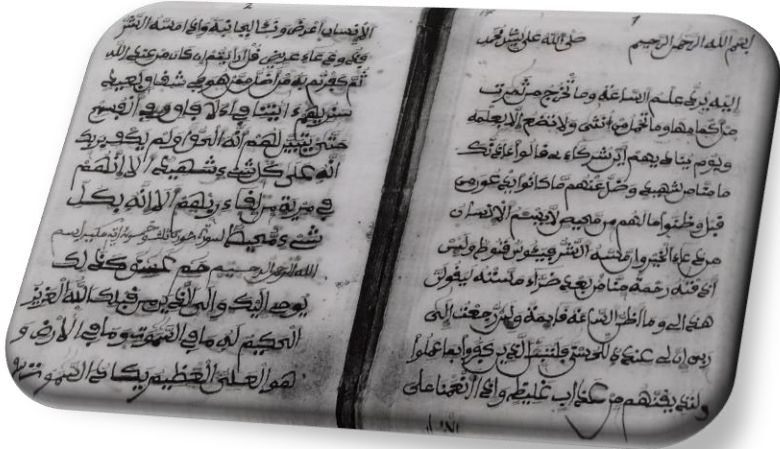 بسم الله الرحمن الرحيم صلى الله على سيدنا محمد
إليه يرد علم الساعة وما تخرج من ثمرت
من أكمامها وما تحمل من أنثى ولا تضع إلا بعلمه
ويوم يناديهم أين شركاءي قالوا ءاذنك
ما منا من شهيد وضل عنهم ما كانوا يدعون من
قبل وظنوا ما لهم من محيص لا يسئم الإنسان
من دعاء الخير وإن مسه الشر فيئوس قنوط ولئن
أذقنه رحمة منا من بعد ضراء مسته ليقولن
هذا لي وما أظن الساعة قايمة ولئن رجعت إلى
ربي إن لي عنده للحسنى فلننبئن الذين كفروا بما عملوا
ولنذيقنهم من عذاب غليظ وإذا أنعمنا على
الإنسان أعرض ونئا بجانبه وإذا مسه الشر
فذو دعاء عريض قل أرايتم إن كان من عند الله
ثم كفرتم به من أضل ممن هو في شقاق بعيد
سنريهم ءايتنا في الافاق وفي أنفسهم
حتى يتبين لهم أنه الحق أولم يكف بربك
أنه على كل شيء شهيد ألا إنهم
في مرية من لقاء ربهم ألا إنه بكل
شيء محيط سورة بسم
الله الرحمن الرحيم حم عسق كذلك
يوحي إليك وإلى الذين من قبلك الله العزيز
الحكيم له ما في السموت وما في الأرض و
هو العلي العظيم يكاد السموت